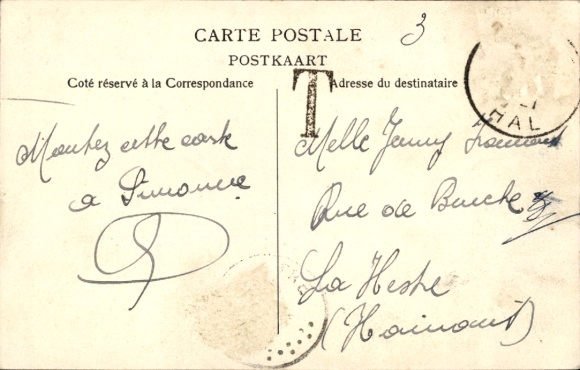 CARTE POSTALE
POSTKAART
3
Coté réservé à la Correspondance
T
Adresse du destinataire
HAL
Montez cette carte
a Simonne
Melle Jenny
Rue de Binche
La Hestre
(Hainaut)